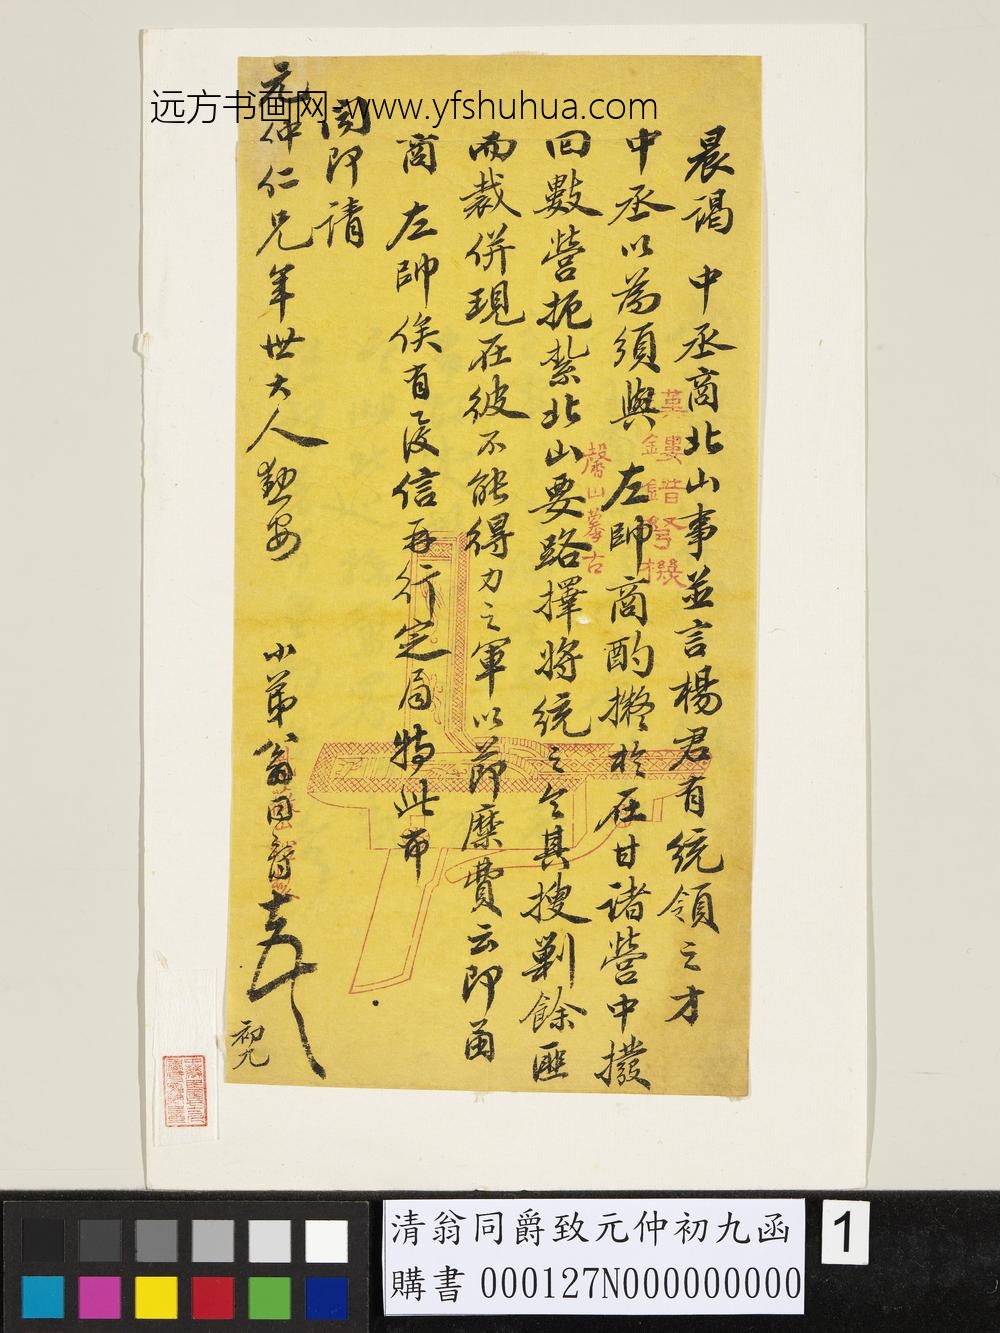 远方书画网-www.yfshuhua.com
晨謁　中丞商北山事並言楊君有統領之才
中丞以為須與　左帥商酌擬於在甘諸營中撥
回數營扼紮北山要路擇將統之令其搜剿餘匪
而裁併現在彼不能得力之軍以節糜費云即函
商　左帥俟有復信再行定局特此布
聞即請
元仲仁兄年世大人勛安　小弟翁同爵頓
初九
鏤錯弩機
馨山摹古
清翁同爵致元仲初九函
購書 000127N000000000
1